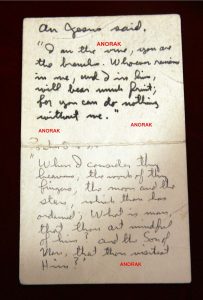 As Jesus said.
"I am the vine, you are
the branches. Whoever remains
in me, and I in him,
will bear much fruit;
for you can do nothing
without me."
"When I consider thy
heavens, the work of thy
fingers, the moon and the
stars, which thou has
ordained; What is man,
that thou art mindful
of him? and the Son of
Man, that thou visitest
Him?"
ANORAK
ANORAK
ANORAK
ANORAK
ANORAK